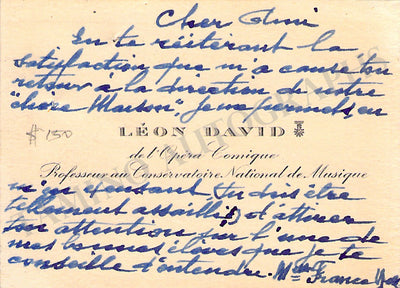 Cher Ami
En te réitérant la
satisfaction que m'a causé ton
retour à la direction de notre
"chère Maison", je me permets, en
$ 150
LÉON DAVID
de l'Opéra-Comique
Professeur au Conservatoire National de Musique
m'en excusant, tu dois être
tellement assailli, d'attirer
ton attention sur l'une de
mes bonnes élèves que je te
conseille d'entendre. Mlle France
TAMINO AUTOGRAPHS